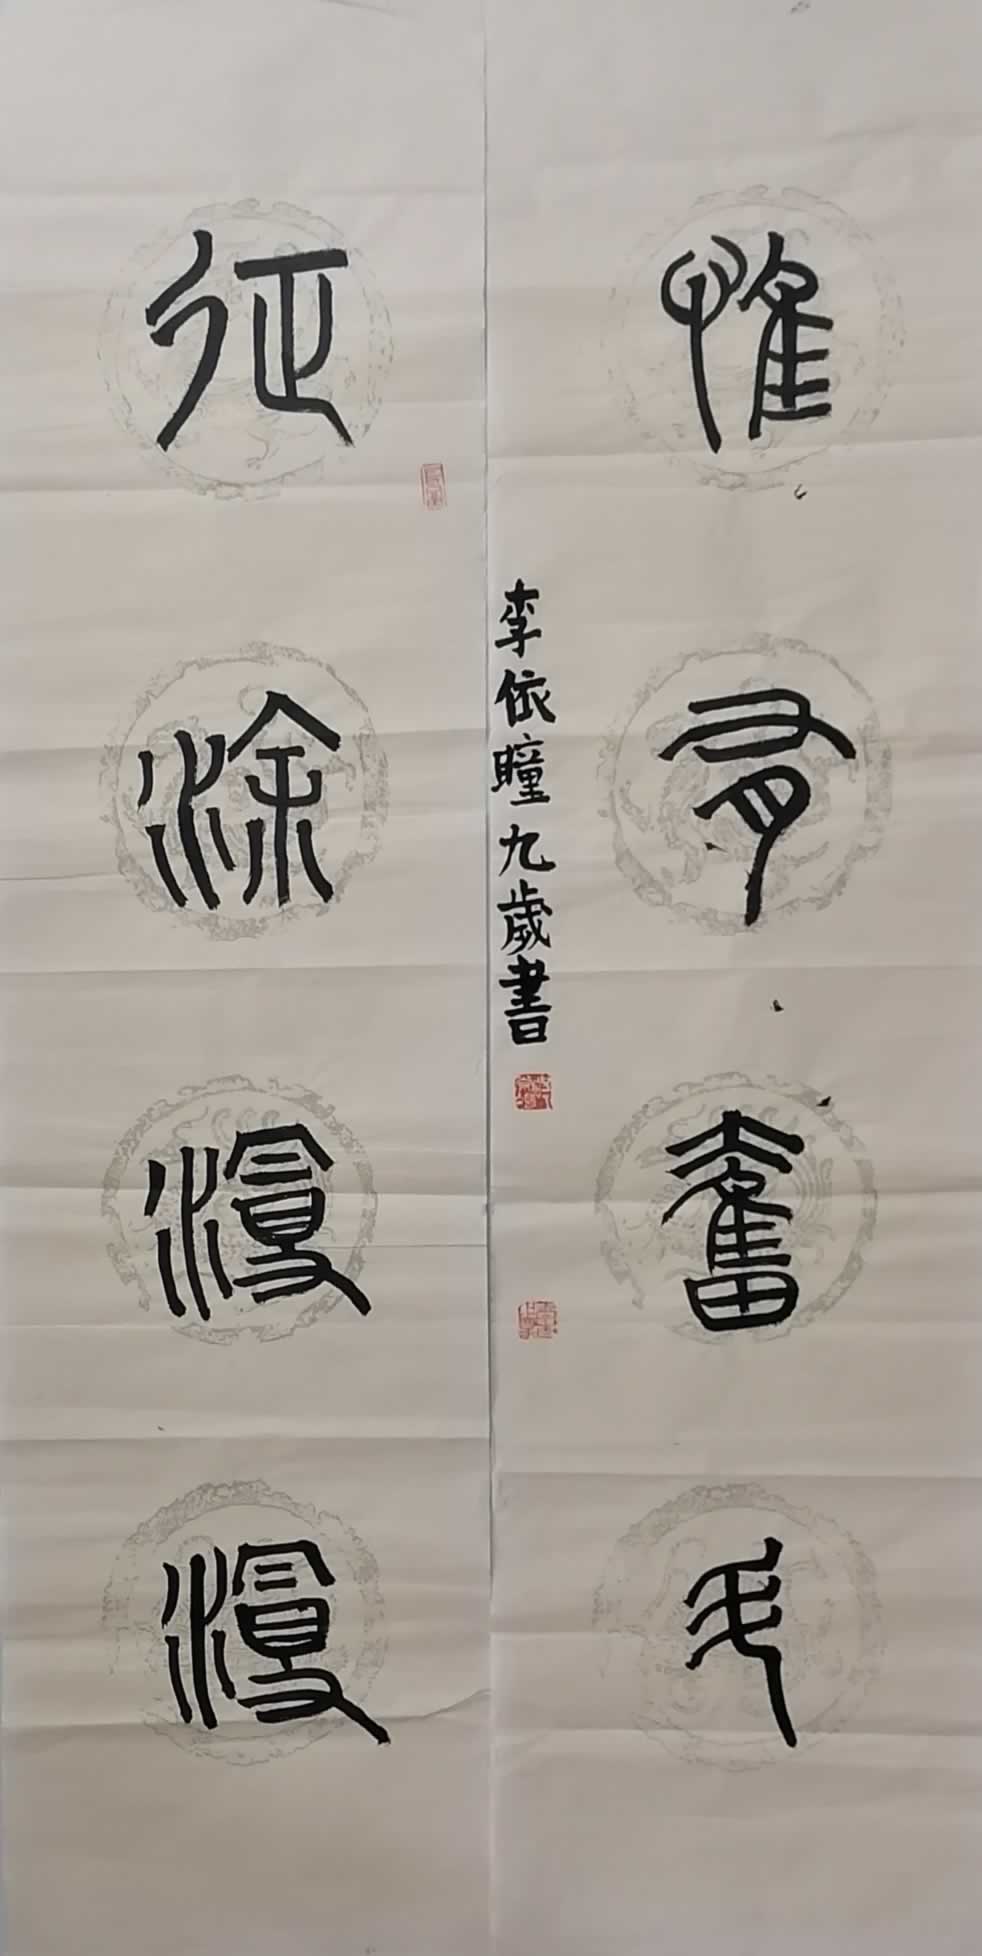 征涂漫漫
惟有奮斗
李依瞳九歲書